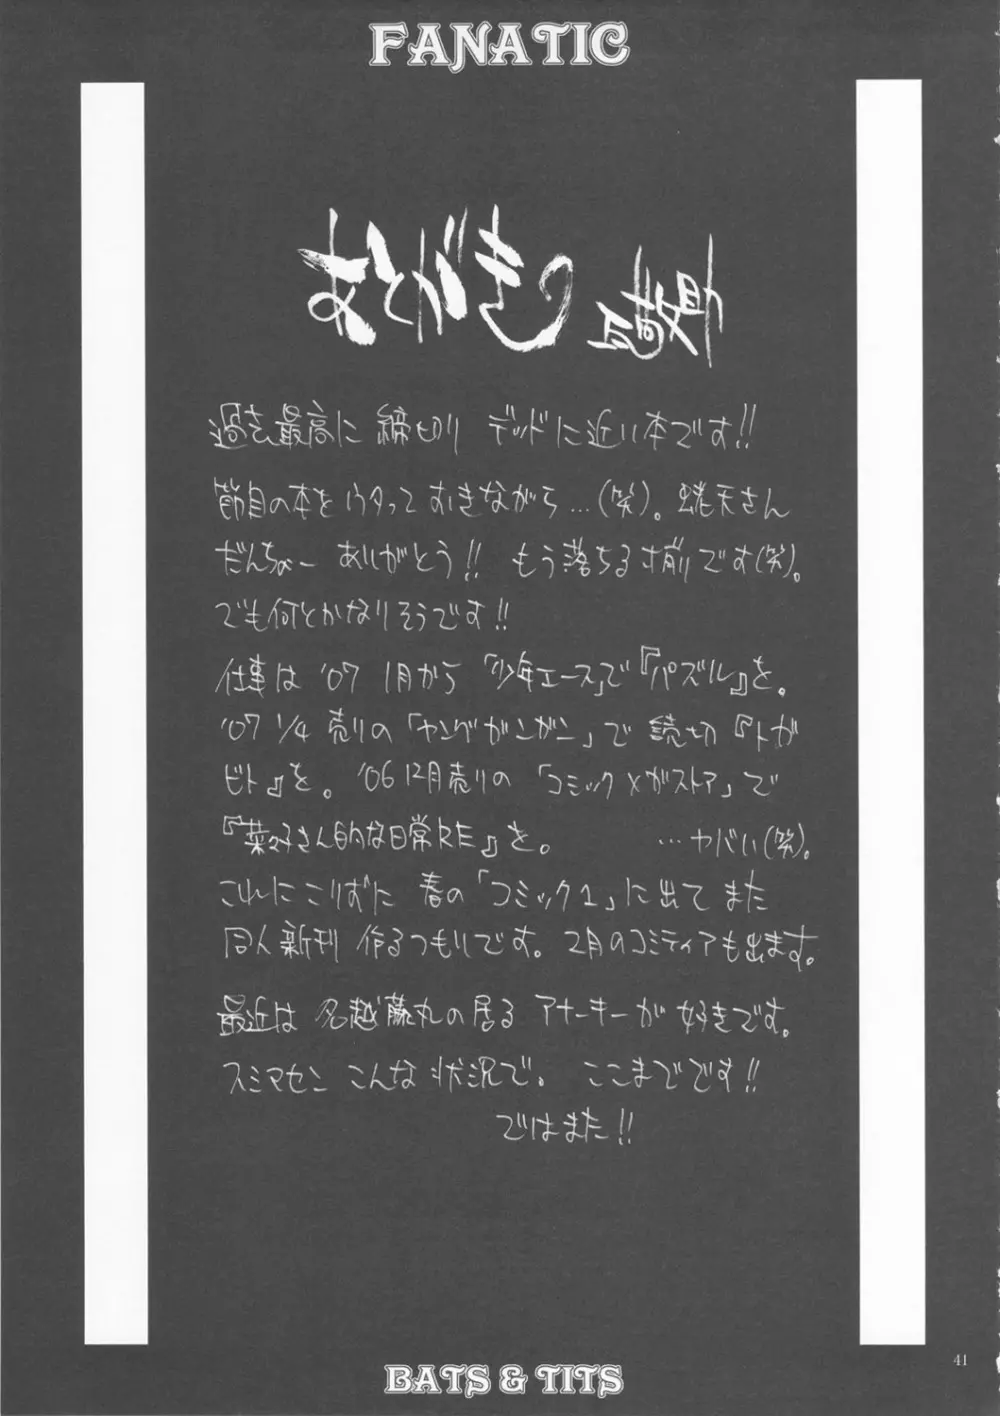 FANATIC
あとがき
瓦敬助
過去最高に 締切り デッドに近い本です!!
節目の本を
ながら…(笑)。
さん
だんちょー ありがとう!! もう落ちる寸前です(笑)。
でも何とかなりそうです!!
仕事は '07 1月から「少年エース」で『パズル』を。
'07 1/4 売りの「ヤングガンガン」で 読切『トガ
ビト』を。 '06 12月売りの「コミック×ガストア」で
『菜々子さん的な日常RE』を。 …ヤバい(笑)。
これにこりずに 春の「コミック1」に出て また
同人新刊 作るつもりです。2月のコミティアも出ます。
最近は 名越藤丸の居る アナーキーが 好きです。
スミマセン こんな 状況で。 ここまでです!!
ではまた!!
BATS & TITS
41